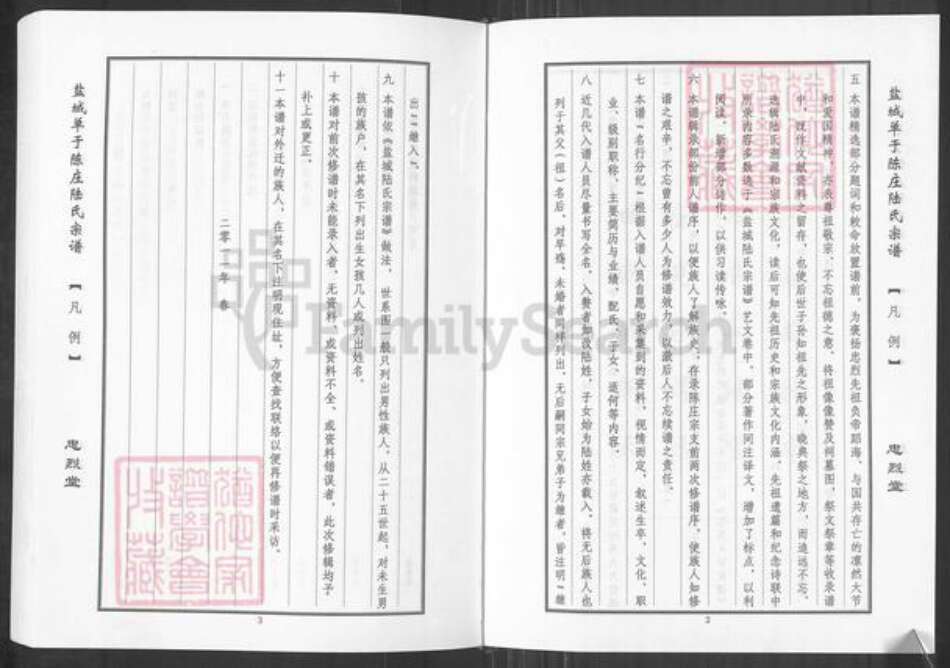 盐城单于陈庄陆氏宗谱 【凡例】 忠烈堂
五 本谱精选部分题词和敕命放置谱前，为褒扬忠烈先祖负帝蹈海、与国共存亡的凛然大节
和爱国精神，亦表尊祖敬宗、不忘祖德之意，将祖像像赞及祠墓图，祭文祭章等收录谱
中，既作文献资料之留存，也使后世子孙如祖先之形象，晓典祭之地方，而追远不忘。
选辑陆氏溯源和宗族文化，读后可知先祖历史和宗族文化内涵。先祖遗篇和纪念诗联中
所录内容多数选于《盐城陆氏宗谱》艺文卷中，部分著作间注译文，增加了标点，以利
阅读，新增部分诗作，以供习读传咏。
六 本谱辑录部份前人谱序，以便族人了解族史，存录陈庄宗支前两次修谱序，使族人知修
谱之艰辛，不忘曾有多少人为修谱效力，以激后人不忘续谱之责任。
七 本谱“名行分纪”根据入谱人员自愿和采集到的资料，视情而定，叙述生卒、文化、职
业、级别职称、主要简历与业绩、配氏、子女、适何等内容。
八 近几代入谱人员尽量书写全名，入赘者如改陆姓，子女始为陆姓亦载入。将无后族人也
列于其父（祖）名后，对早殇、未婚者同样列出，无后嗣同宗兄弟子为继者，皆注明“继
2
出”“继入”。
九 本谱依《盐城陆氏宗谱》做法，世系图一般只列出男性族人，从二十五世起，对未生男
孩的族户，在其名下列出生女孩几人或列出姓名。
十 本谱对前次修谱时未能录入者，无资料、或资料不全、或资料错误者，此次修辑均予
补上或更正。
十一 本谱对外迁的族人，在其名下注明现住址，方便查找联络以便再修谱时采访。
二零一一年 春
盐城单于陈庄陆氏宗谱 【凡例】 忠烈堂
3
FamilySearch